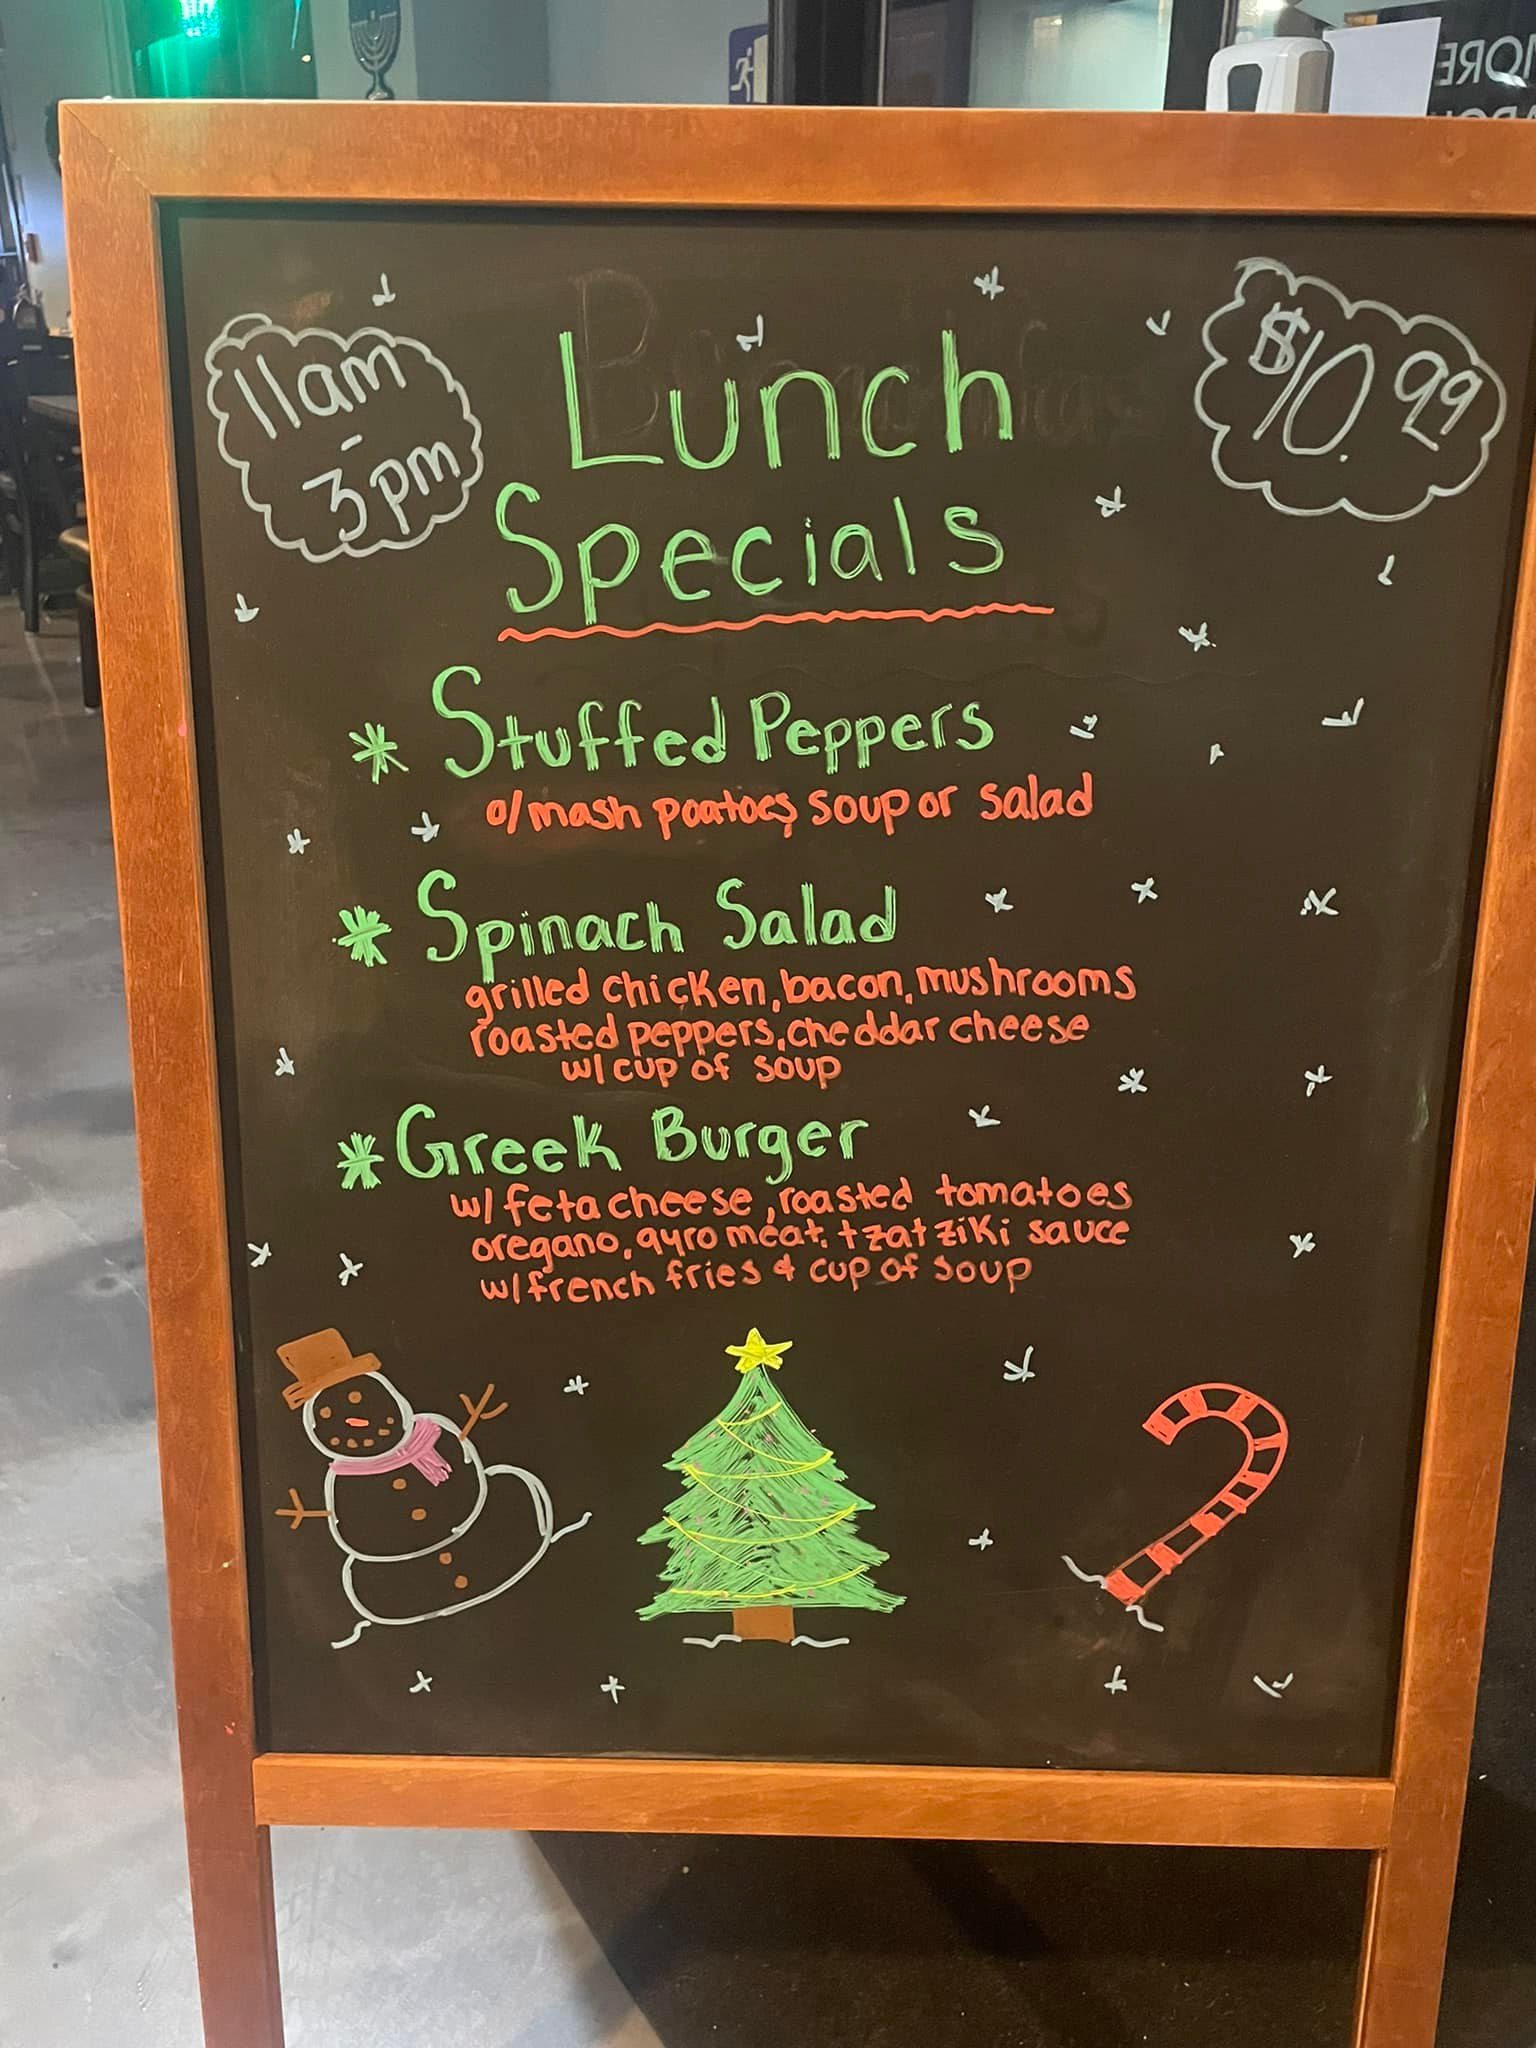 11am
-
3pm
$10.99
Lunch
Specials
* Stuffed Peppers
o/mash poatoes, soup or salad
* Spinach Salad
grilled chicken, bacon, mushrooms
roasted peppers, cheddar cheese
w/cup of soup
* Greek Burger
w/ feta cheese, roasted tomatoes
oregano, gyro meat, tzatziki sauce
w/french fries & cup of soup